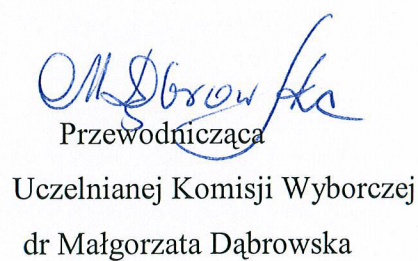 M Dąbrowska
Przewodnicząca
Uczelnianej Komisji Wyborczej
dr Małgorzata Dąbrowska